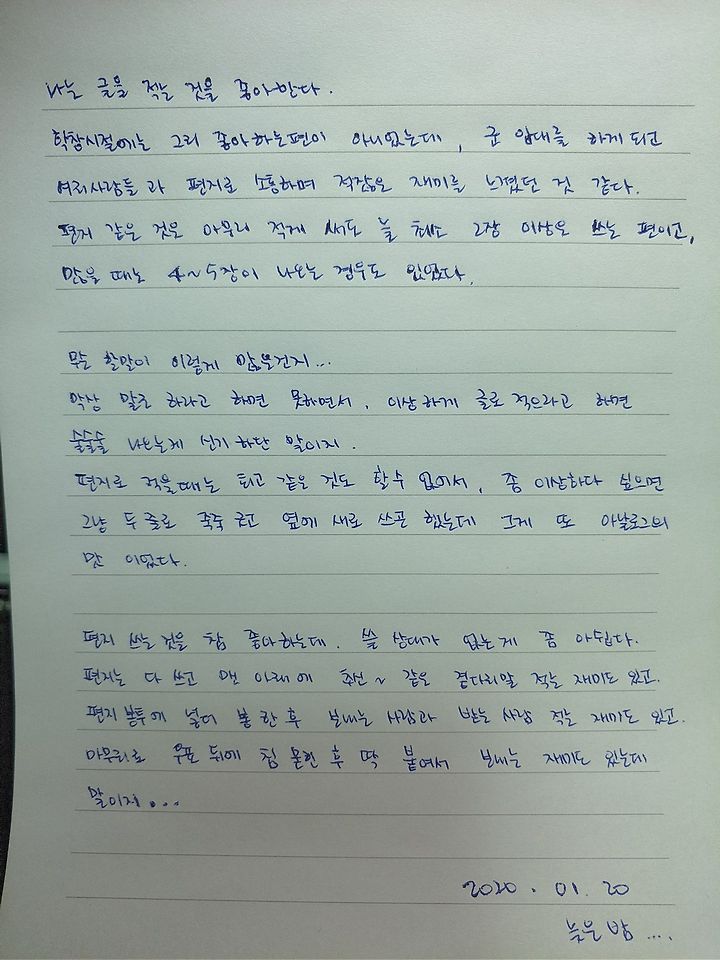 나는 글을 적는 것을 좋아한다.
학창시절에는 그리 좋아하는편이 아니었는데, 군 입대를 하게되고
여러사람들과 편지로 소통하며 적잖은 재미를 느꼈던 것 같다.
편지 같은 것은 아무리 적게 써도 늘 최소 2장 이상은 쓰는 편이고,
많을때는 4~5장이 나오는 경우도 있었다.
무슨 할말이 이렇게 많은건지...
막상 말로 하라고 하면 못하면서, 이상하게 글로 적으라고 하면
술술술 나오는게 신기하단 말이지.
편지로 적을때는 퇴고 같은 것도 할수 없어서, 좀 이상하다 싶으면
그냥 두 줄로 죽죽 긋고 옆에 새로 쓰곤 했는데 그게 또 아날로그의
맛 이었다.
편지 쓰는것을 참 좋아하는데, 쓸 상대가 없는게 좀 아쉽다.
편지는 다 쓰고 맨 아래에 추신~ 같은 곁다리말 적는 재미도 있고.
편지봉투에 넣어 봉한후 보내는 사람과 받는 사람 적는 재미도 있고.
마무리로 우표 뒤에 침 묻힌 후 딱 붙여서 보내는 재미도 있는데
말이지...
2020.01.20
늦은 밤....